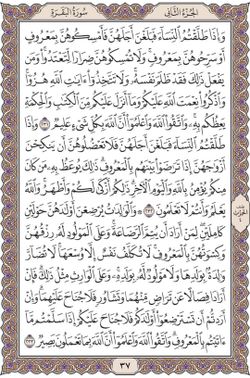 سُورَةُ البَقَرَةِ
الجُزءُ الثَّانِي
وَإِذَا طَلَّقْتُمُ ٱلنِّسَآءَ فَبَلَغْنَ أَجَلَهُنَّ فَأَمْسِكُوهُنَّ بِمَعْرُوفٍ
أَوْ سَرِّحُوهُنَّ بِمَعْرُوفٍ وَلَا تُمْسِكُوهُنَّ ضِرَارًا لِّتَعْتَدُوا۟ وَمَن
يَفْعَلْ ذَٰلِكَ فَقَدْ ظَلَمَ نَفْسَهُۥ وَلَا تَتَّخِذُوٓا۟ ءَايَٰتِ ٱللَّهِ هُزُوًا
وَٱذْكُرُوا۟ نِعْمَتَ ٱللَّهِ عَلَيْكُمْ وَمَآ أَنزَلَ عَلَيْكُم مِّنَ ٱلْكِتَٰبِ وَٱلْحِكْمَةِ
يَعِظُكُم بِهِۦ وَٱتَّقُوا۟ ٱللَّهَ وَٱعْلَمُوٓا۟ أَنَّ ٱللَّهَ بِكُلِّ شَىْءٍ عَلِيمٌ ٢٣١ وَإِذَا
طَلَّقْتُمُ ٱلنِّسَآءَ فَبَلَغْنَ أَجَلَهُنَّ فَلَا تَعْضُلُوهُنَّ أَن يَنكِحْنَ
أَزْوَٰجَهُنَّ إِذَا تَرَٰضَوْا۟ بَيْنَهُم بِٱلْمَعْرُوفِ ذَٰلِكَ يُوعَظُ بِهِۦ مَن
كَانَ مِنكُمْ يُؤْمِنُ بِٱللَّهِ وَٱلْيَوْمِ ٱلْءَاخِرِ ذَٰلِكُمْ أَزْكَىٰ لَكُمْ وَأَطْهَرُ وَٱللَّهُ
يَعْلَمُ وَأَنتُمْ لَا تَعْلَمُونَ ٢٣٢ وَٱلْوَٰلِدَٰتُ يُرْضِعْنَ أَوْلَٰدَهُنَّ حَوْلَيْنِ
كَامِلَيْنِ لِمَنْ أَرَادَ أَن يُتِمَّ ٱلرَّضَاعَةَ وَعَلَى ٱلْمَوْلُودِ لَهُۥ رِزْقُهُنَّ
وَكِسْوَتُهُنَّ بِٱلْمَعْرُوفِ لَا تُكَلَّفُ نَفْسٌ إِلَّا وُسْعَهَا لَا تُضَآرَّ
وَٰلِدَةٌۢ بِوَلَدِهَا وَلَا مَوْلُودٌ لَّهُۥ بِوَلَدِهِۦ وَعَلَى ٱلْوَارِثِ مِثْلُ ذَٰلِكَ فَإِنْ
أَرَادَا فِصَالًا عَن تَرَاضٍ مِّنْهُمَا وَتَشَاوُرٍ فَلَا جُنَاحَ عَلَيْهِمَا وَإِنْ
أَرَدتُّمْ أَن تَسْتَرْضِعُوٓا۟ أَوْلَٰدَكُمْ فَلَا جُنَاحَ عَلَيْكُمْ إِذَا سَلَّمْتُم مَّآ
ءَاتَيْتُم بِٱلْمَعْرُوفِ وَٱتَّقُوا۟ ٱللَّهَ وَٱعْلَمُوٓا۟ أَنَّ ٱللَّهَ بِمَا تَعْمَلُونَ بَصِيرٌ ٢٣٣
٣٧